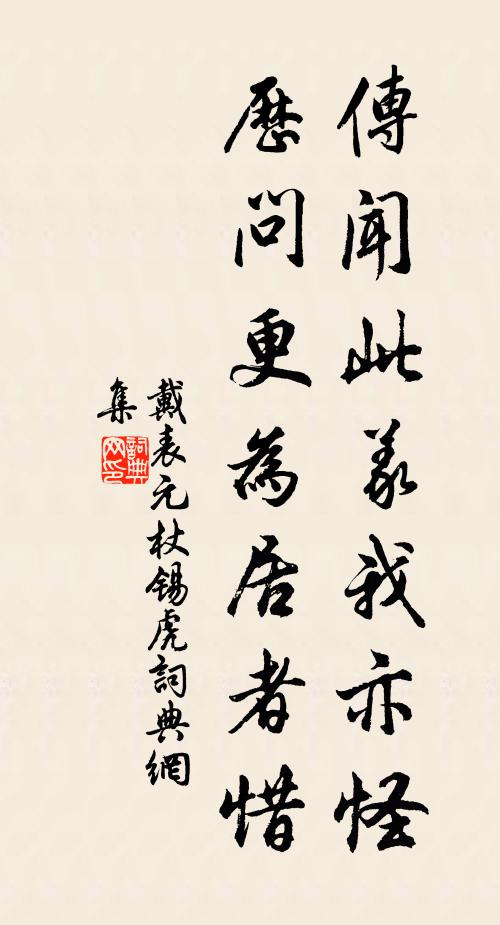 傳聞此義我亦怪
歷問更為居者惜
戴表元杖錫虎詞典網
集
詞典
网印